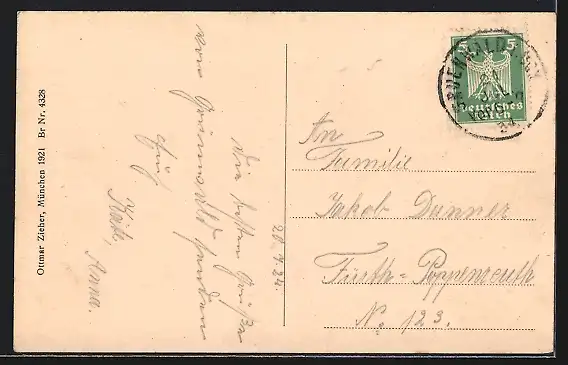 Ottmar Zieher, München 1921 Br Nr. 4328
29.7.24.
Die besten Grüße
von Grünwald senden
Euch
Käte, Anna.
5 5
Deutsches
Reich
GRUENWALD
An
Familie
Jakob Danner
Fürth-Poppenreuth
No. 123.